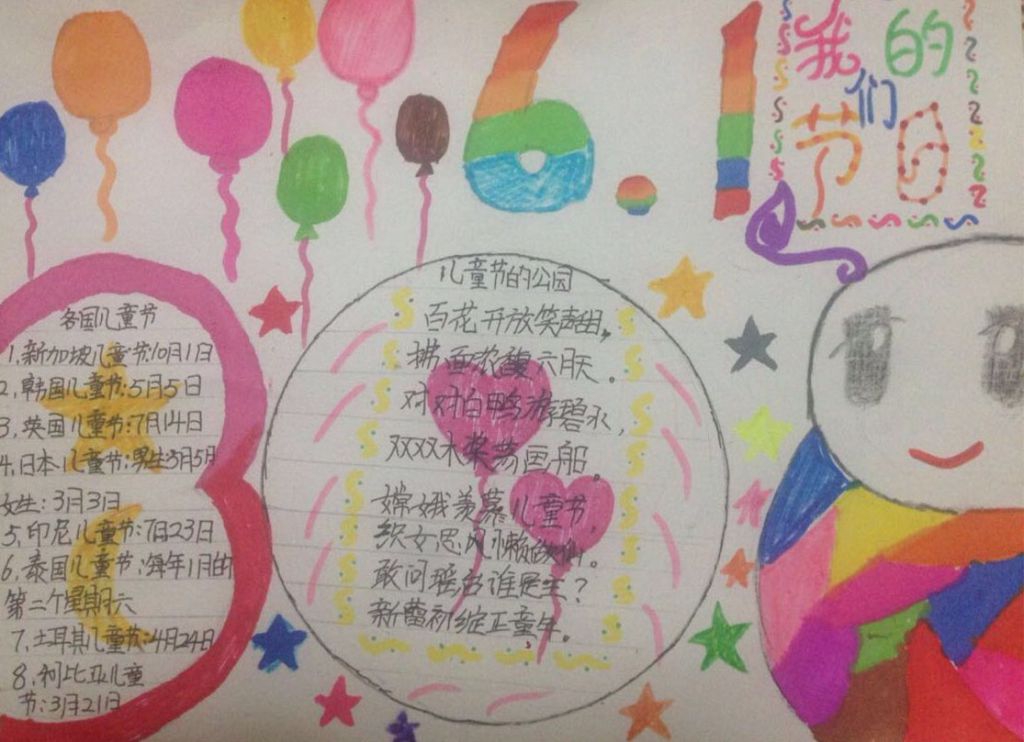 6.1
我们的
节日
各国儿童节
1.新加坡儿童节:10月1日
2.韩国儿童节:5月5日
3.英国儿童节:7月14日
4.日本儿童节:男生5月5日
女生:3月3日
5.印尼儿童节:7月23日
6.泰国儿童节:每年1月的
第二个星期六
7.土耳其儿童节:4月24日
8.利比亚儿童
节:3月21日
儿童节的公园
百花开放笑声甜,
拂面浓馥六月天。
对对白鸭游碧水,
双双木桨荡画船。
嫦娥羡慕儿童节,
织女思凡懒做仙。
敢问瑶台谁更生?
新蕾初绽正童年。